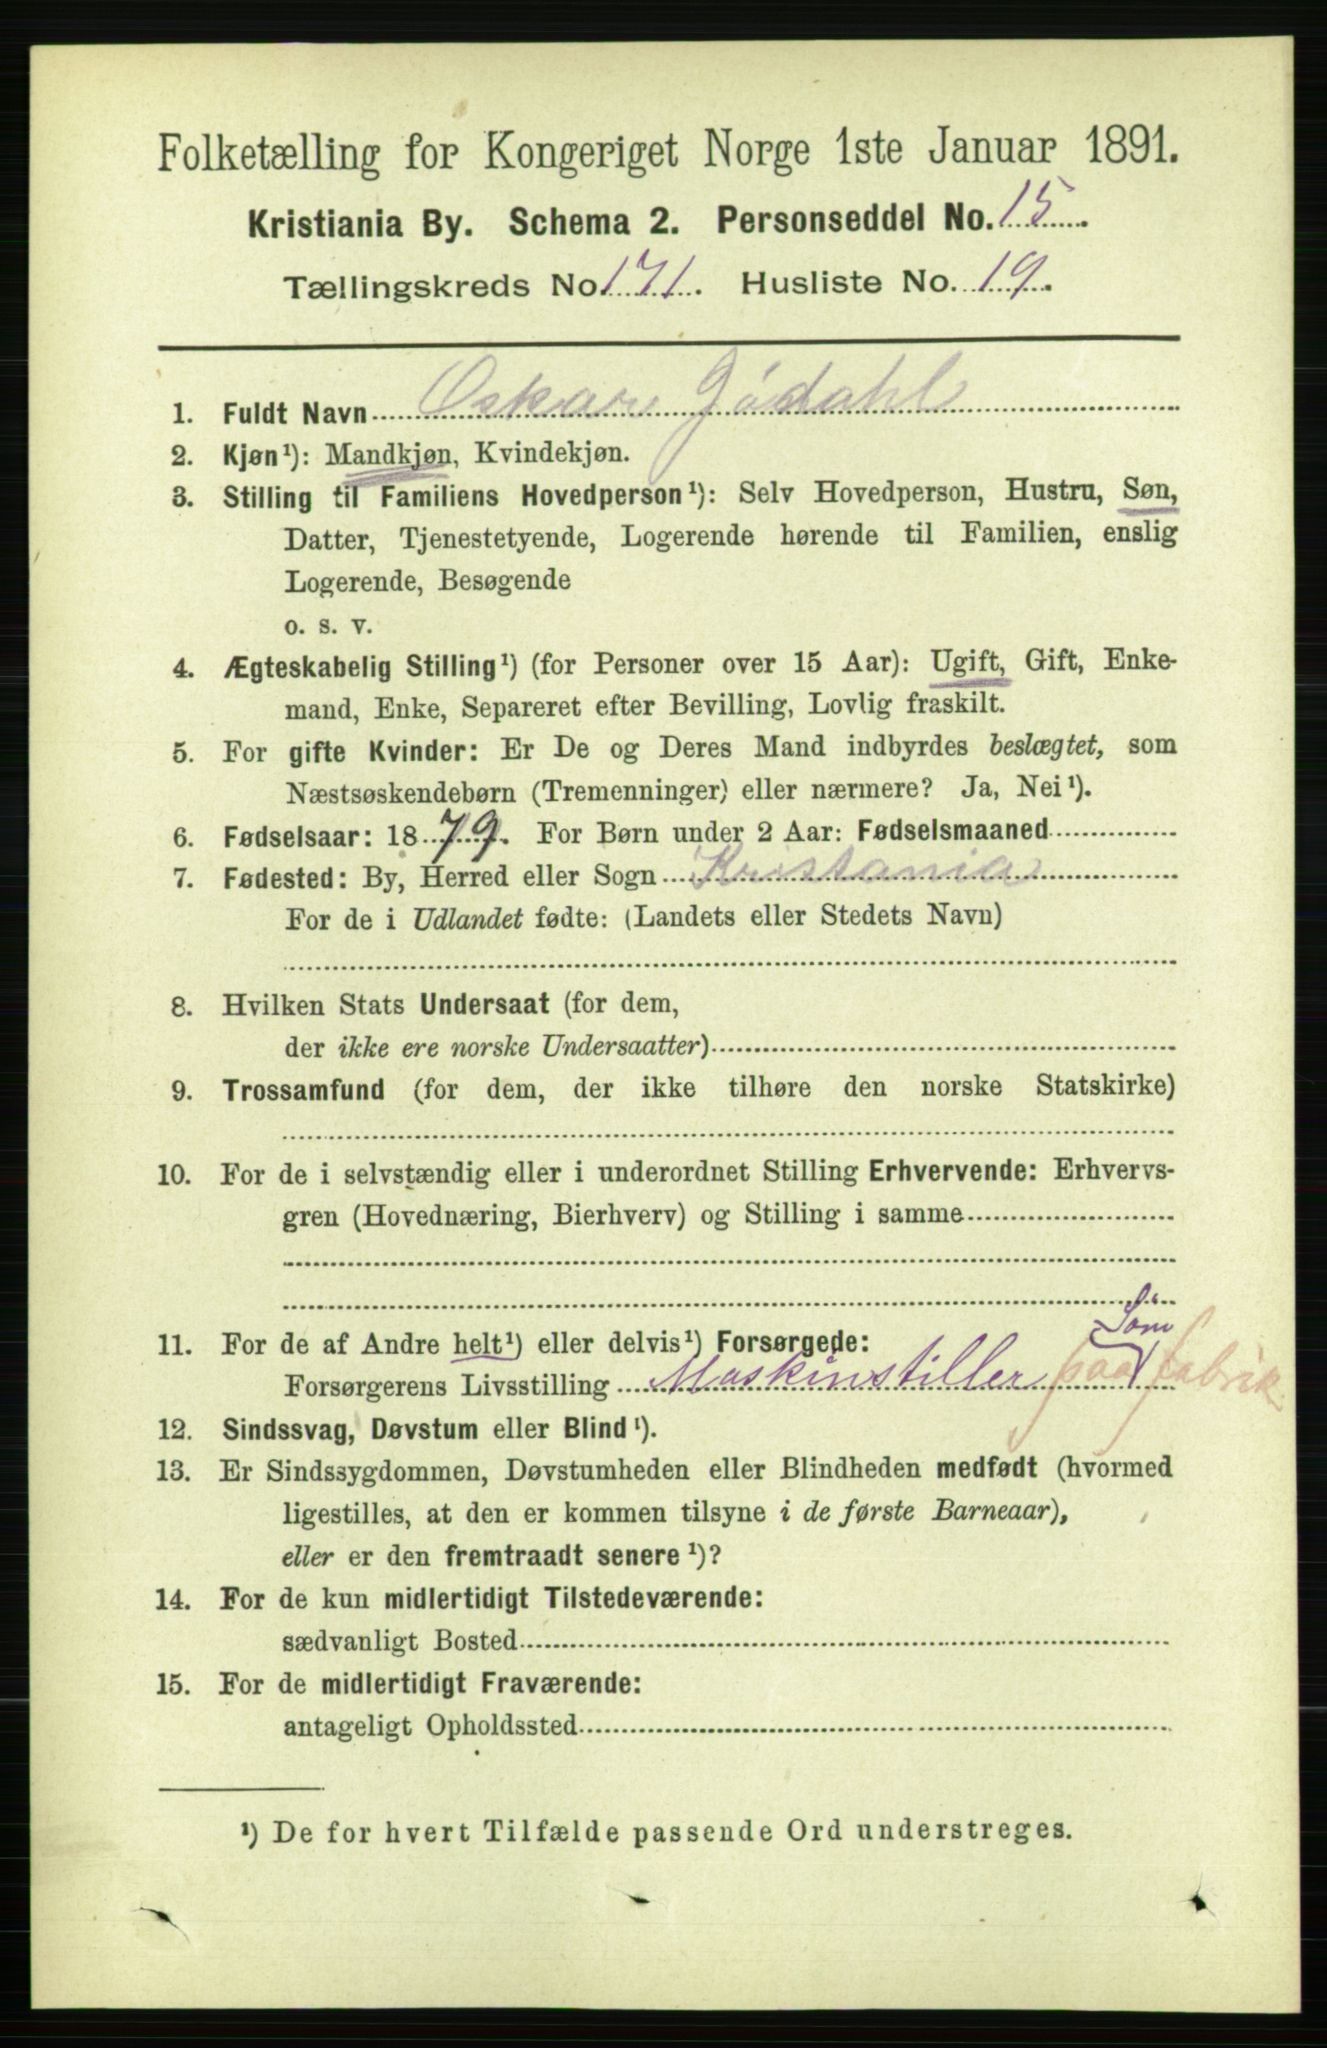 Folketælling for Kongeriget Norge 1ste Januar 1891.
Kristiania By. Schema 2. Personseddel No. 15.
Tællingskreds No. 171. Husliste No. 19.
1. Fuldt Navn Oskar Jödahl
2. Kjøn¹): Mandkjøn, Kvindekjøn.
3. Stilling til Familiens Hovedperson¹): Selv Hovedperson, Hustru, Søn,
Datter, Tjenestetyende, Logerende hørende til Familien, enslig
Logerende, Besøgende
o. s. v.
4. Ægteskabelig Stilling¹) (for Personer over 15 Aar): Ugift, Gift, Enke-
mand, Enke, Separeret efter Bevilling, Lovlig fraskilt.
5. For gifte Kvinder: Er De og Deres Mand indbyrdes beslægtet, som
Næstsøskendebørn (Tremenninger) eller nærmere? Ja, Nei¹).
6. Fødselsaar: 1879. For Børn under 2 Aar: Fødselsmaaned
7. Fødested: By, Herred eller Sogn Kristania
For de i Udlandet fødte: (Landets eller Stedets Navn)
8. Hvilken Stats Undersaat (for dem,
der ikke ere norske Undersaatter)
9. Trossamfund (for dem, der ikke tilhøre den norske Statskirke)
10. For de i selvstændig eller i underordnet Stilling Erhvervende: Erhvervs-
gren (Hovednæring, Bierhverv) og Stilling i samme
11. For de af Andre helt¹) eller delvis¹) Forsørgede:
Söm
Forsørgerens Livsstilling Maskinstiller paa fabrik
12. Sindssvag, Døvstum eller Blind¹).
13. Er Sindssygdommen, Døvstumheden eller Blindheden medfødt (hvormed
ligestilles, at den er kommen tilsyne i de første Barneaar),
eller er den fremtraadt senere¹)?
14. For de kun midlertidigt Tilstedeværende:
sædvanligt Bosted
15. For de midlertidigt Fraværende:
antageligt Opholdssted
¹) De for hvert Tilfælde passende Ord understreges.